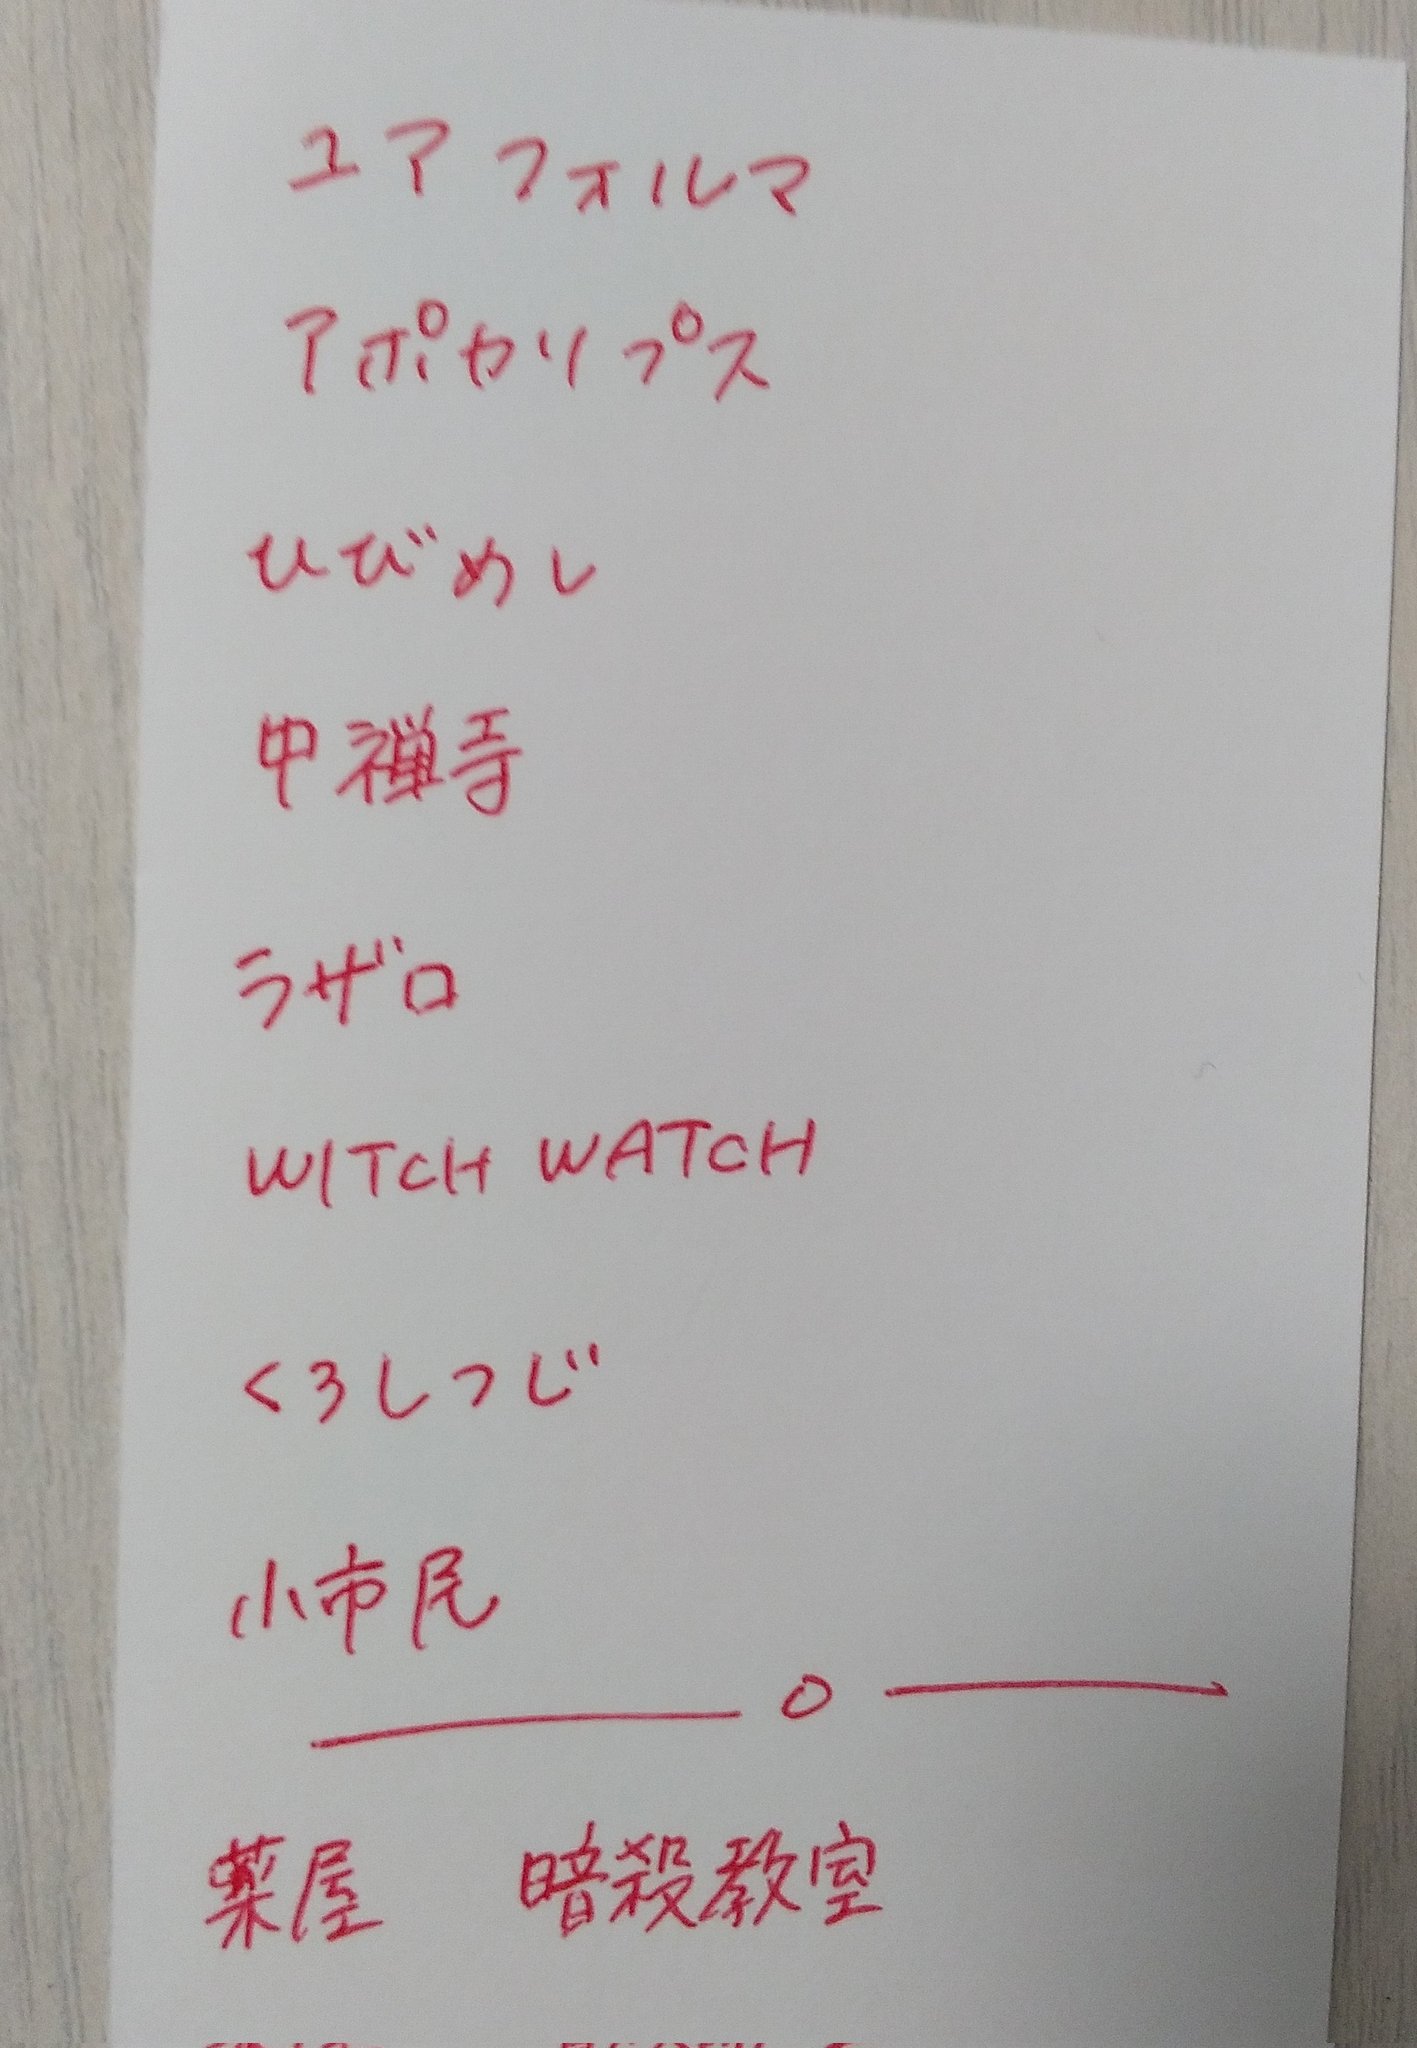 ユアフォルマ
アポカリプス
ひびめし
中禅寺
ラザロ
WITCH WATCH
くろしつじ
小市民
薬屋 暗殺教室